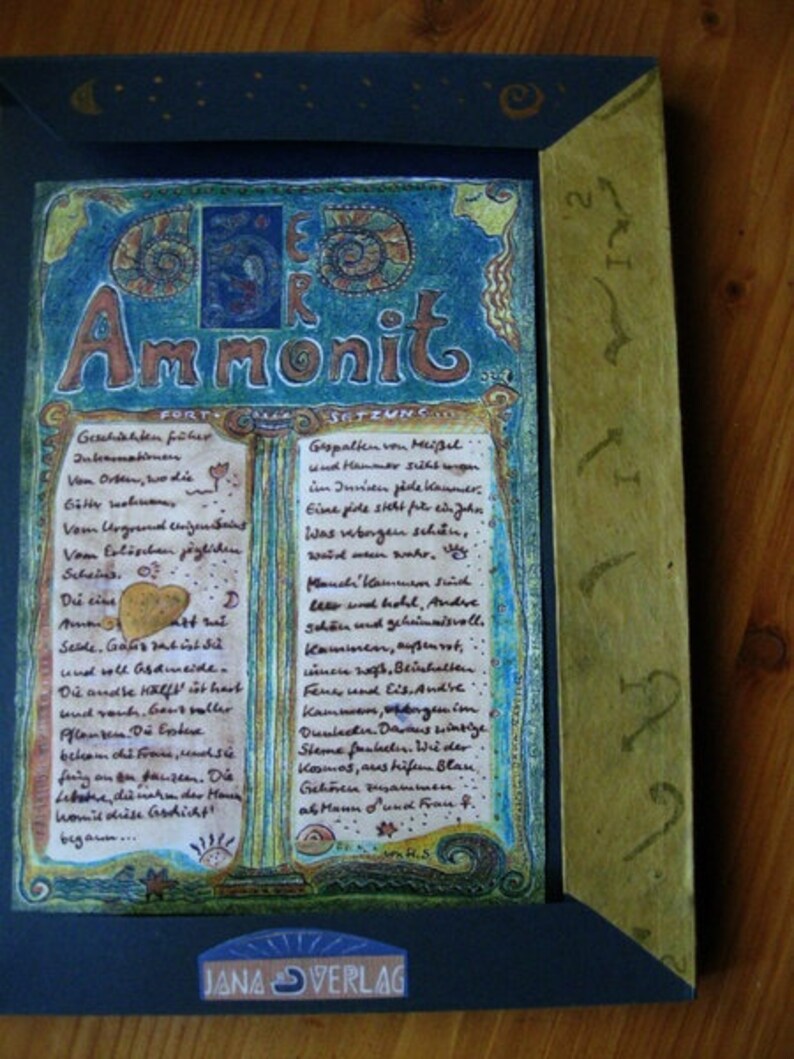 DER
Ammonit
FORT-
SETZUNG...
Geschichten früher
Inkarnationen
Von Orten, wo die
Götter wohnen,
Vom Urgrund ewigen Seins
Vom Erlöschen jeglichen
Scheins.
Die eine
Seide. Ganz zart ist sie
und voll Geschmeide.
Die andre Hälft' ist hart
und rauh. Ganz voller
Pflanzen. Die Erstere
bekam die Frau, und sie
fing an zu tanzen. Die
Letztere, die nahm der Mann
womit diese Gschicht'
begann...
Gespalten von Meißel
und Hammer sieht man
im Innern jede Kammer.
Eine jede steht für ein Jahr.
Was verborgen schien,
wird nun wahr.
Manch' Kammern sind
leer und hohl, Andere
schön und geheimnisvoll.
Kammern, außen rot,
innen weiß, Beinhalten
Feuer und Eis. Andre
Kammern, verborgen im
Dunkeln. Daraus winzige
Sterne funkeln. Wie der
Kosmos, aus tiefem Blau,
Gehören zusammen
als Mann ♂ und Frau ♀.
von H.S
JANA VERLAG